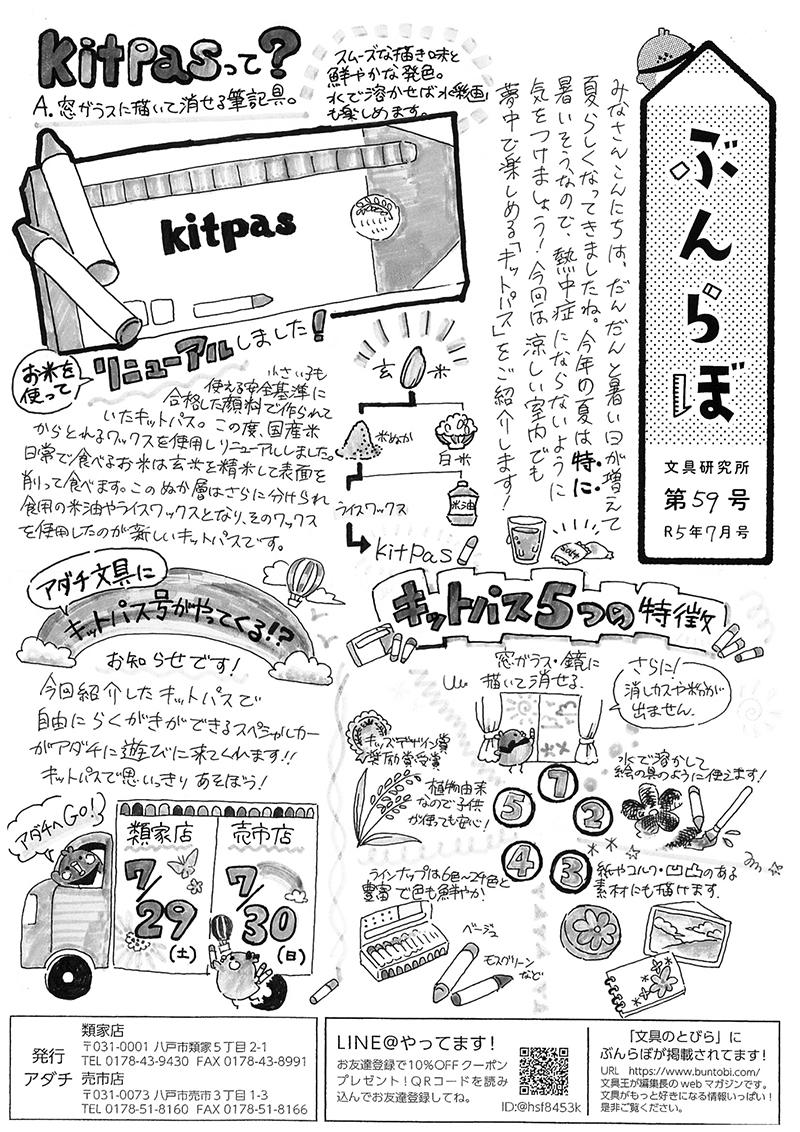 ぶんらぼ
文具研究所
第59号
R5年7月号
みなさんこんにちは、だんだんと暑い日が増えて
夏らしくなってきましたね。今年の夏は特に
暑いそうなので、熱中症にならないように
気をつけましょう！今回は涼しい室内でも
夢中で楽しめる「キットパス」をご紹介します！
kitpasって？
A.窓ガラスに描いて消せる筆記具。
スムーズな描き味と
鮮やかな発色。
水で溶かせば水彩画
も楽しめます。
kitpas
お米を
使って
リニューアルしました！
小さい子も
使える安全基準に
合格した顔料で作られて
いたキットパス。この度、国産米
からとれるワックスを使用しリニューアルしました。
日常で食べるお米は玄米を精米して表面を
削って食べます。このぬか層はさらに分けられ
食用の米油やライスワックスとなり、そのワックス
を使用したのが新しいキットパスです。
玄米
米ぬか
白米
ライスワックス
米油
kitpas
アダチ文具に
キットパス号がやってくる!?
お知らせです！
今回紹介したキットパスで
自由にらくがきができるスペシャルカー
がアダチに遊びに来てくれます!!
キットパスで思いっきりあそぼう！
アダチへGO！
類家店
7/29
(土)
売市店
7/30
(日)
キットパス5つの特徴
窓ガラス・鏡に
描いて消せる
さらに！
消しカスや粉が
出ません。
1
水で溶かして
絵の具のように使えます！
2
紙やコルク・凸凹のある
素材にも描けます。
3
ラインナップは6色〜24色と
豊富で色も鮮やか！
ベージュ
モスグリーン
など
4
キッズデザイン賞
奨励賞受賞
植物由来
なので子供
が使っても安心！
5
発行
アダチ
類家店
〒031-0001 八戸市類家5丁目2-1
TEL 0178-43-9430 FAX 0178-43-8991
売市店
〒031-0073 八戸市売市3丁目1-3
TEL 0178-51-8160 FAX 0178-51-8166
LINE@やってます！
お友達登録で10%OFFクーポン
プレゼント！QRコードを読み
込んでお友達登録してね。
ID:@hsf8453k
「文具のとびら」に
ぶんらぼが掲載されてます！
URL https://www.buntobi.com/
文具王が編集長のwebマガジンです。
文具がもっと好きになる情報いっぱい！
是非ご覧ください。